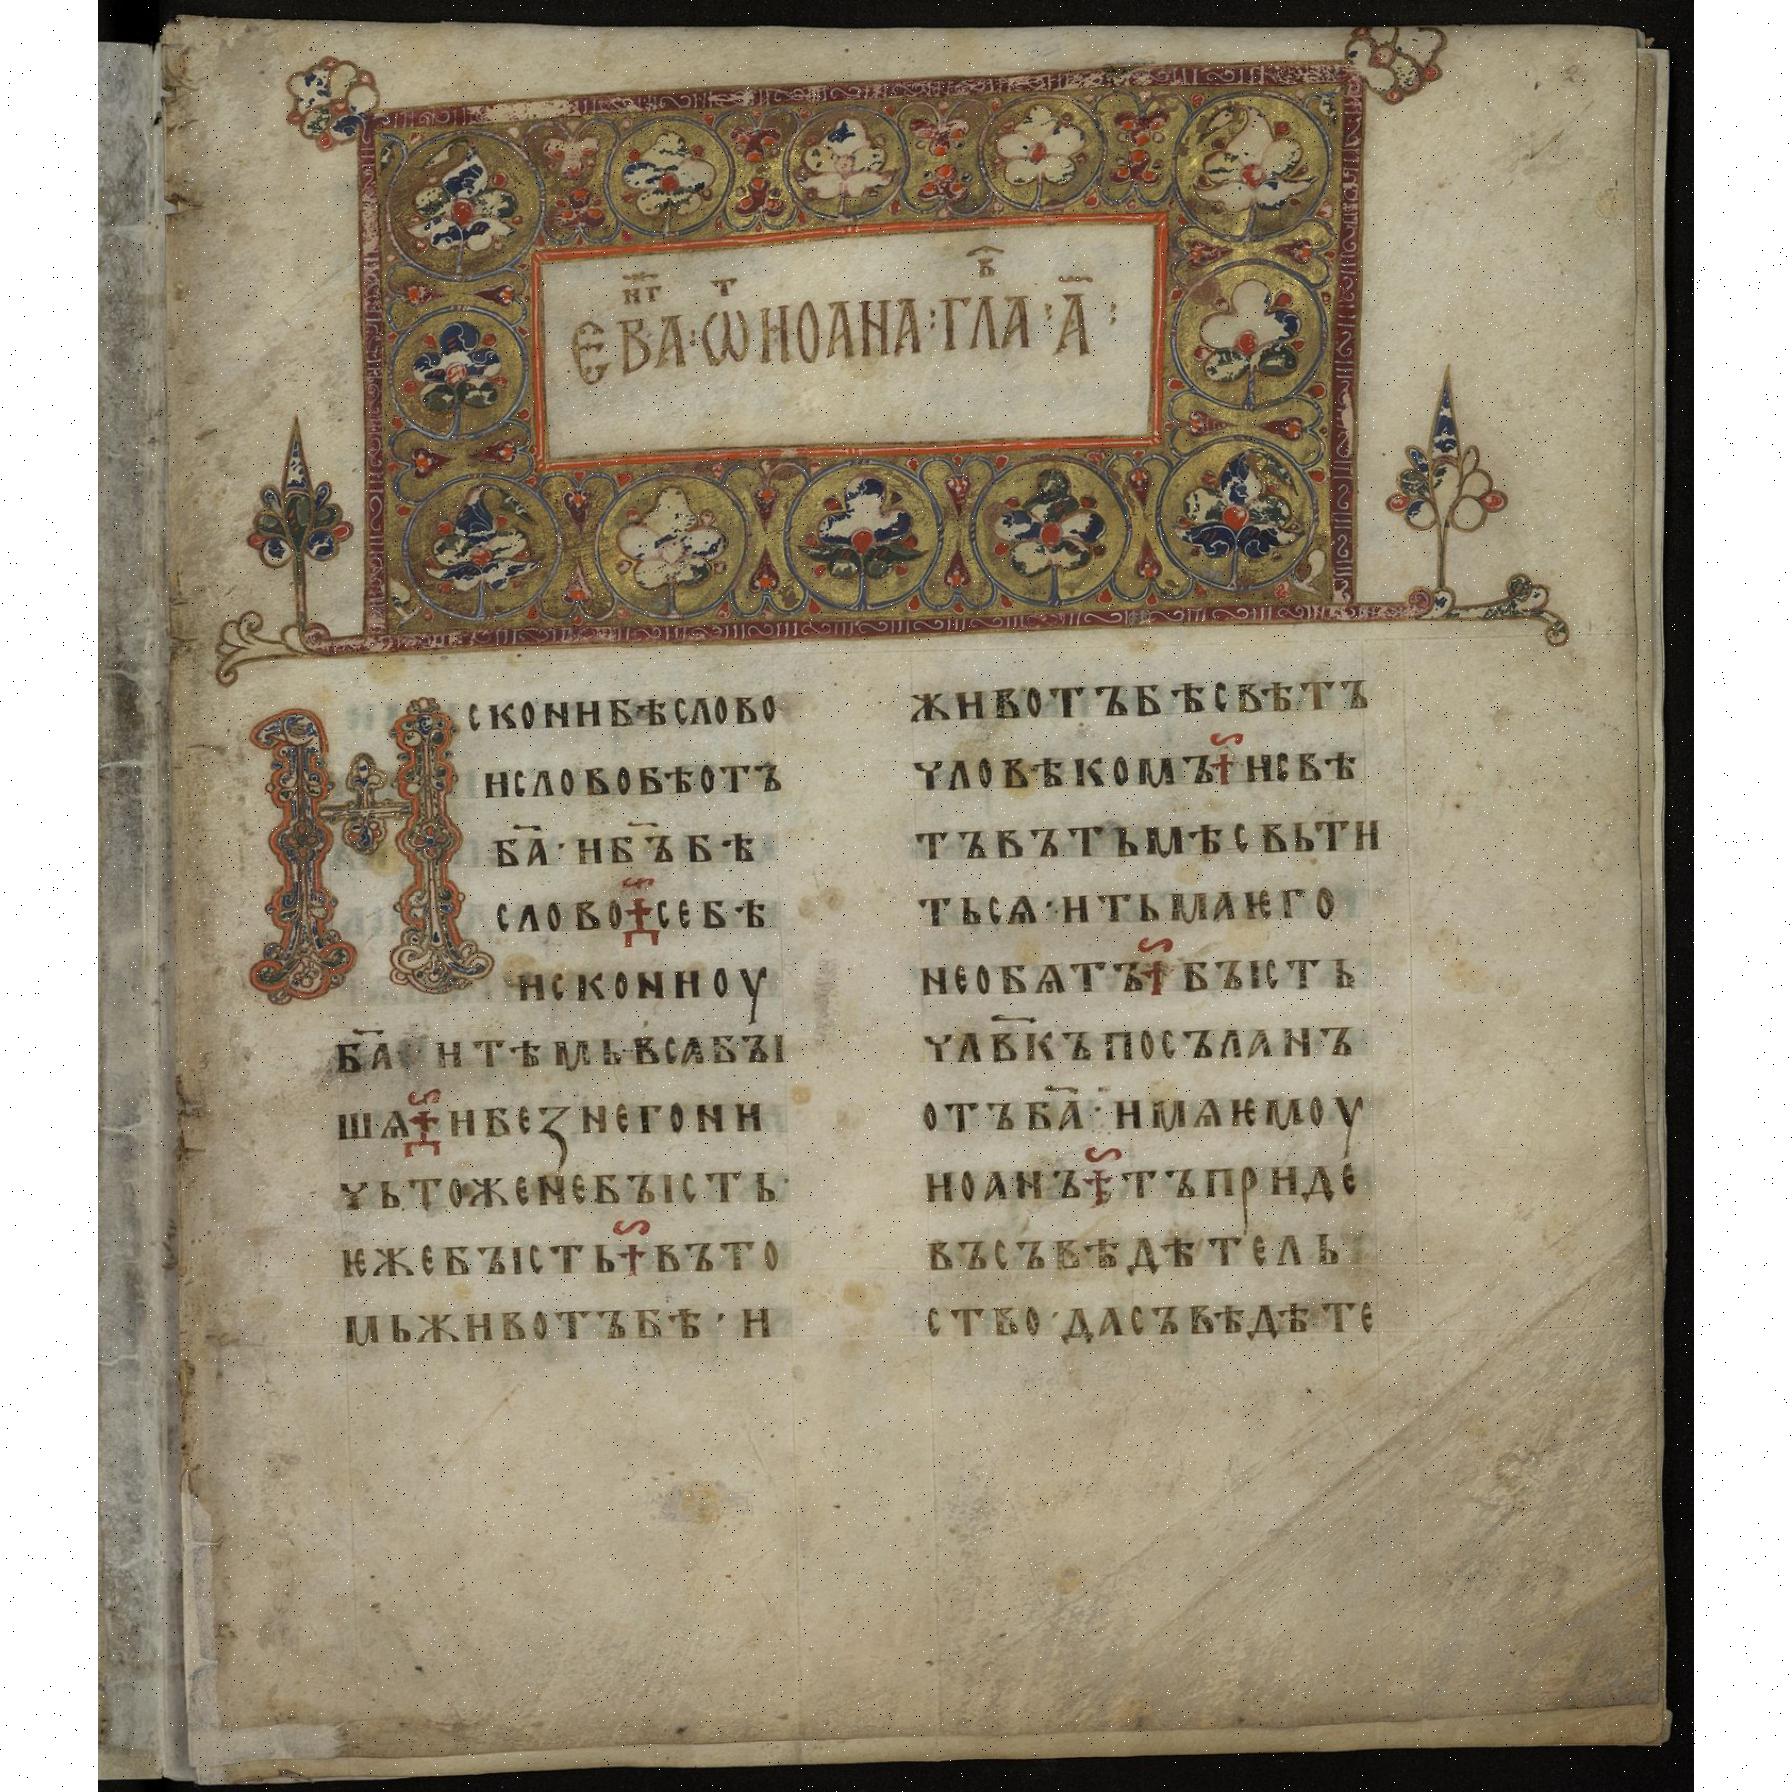 ЕВА҃НГ : Ѿ ИОАНА : ГЛ҃А В : А҃ :
ИСКОНИБѢСЛОВО
ИСЛОВОБѢОТЪ
Б҃А · ИБ҃ЪБѢ
СЛОВО СЕБѢ
ИСКОНИОУ
Б҃А · ИТѢМЬВСѦБЪІ
ШѦ ИБЕЗНЕГОНИ
ЧЬТОЖЕНЕБЪІСТЬ·
ѤЖЕБЪІСТЬ ВЪТО
МЬЖИВОТЪБѢ · И
ЖИВОТЪБѢСВѢТЪ
ЧЛОВѢКОМЪ ИСВѢ
ТЪВЪТЬМѢСВЬТИ
ТЬСѦ · ИТЬМАѤГО
НЕОБѦТЪ БЪІСТЬ
ЧЛ҃ВКЪПОСЪЛАНЪ
ОТЪБ҃А · ИМѦѤМОУ
ИОАНЪ ТЪПРИДЕ
ВЪСЪВѢДѢТЕЛЬ
СТВО · ДАСЪВѢДѢТЕ